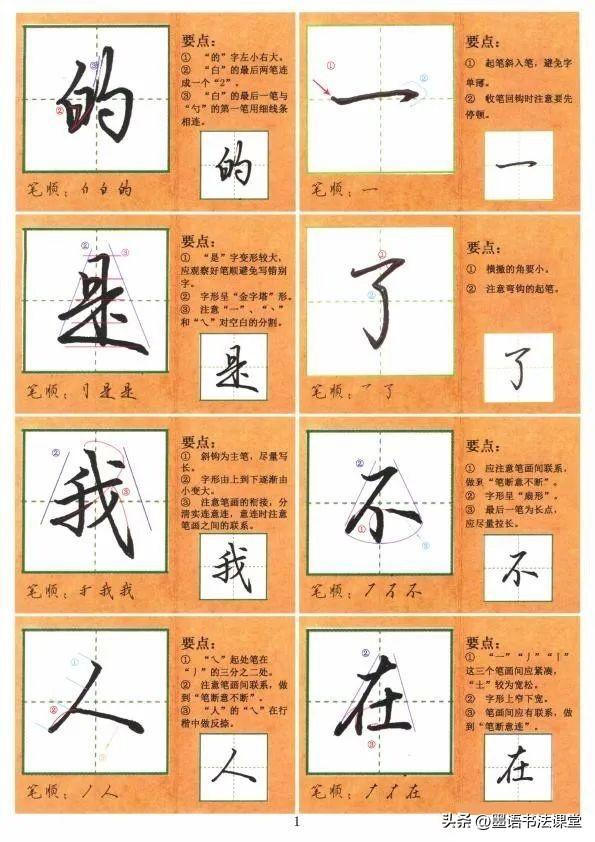 的
要点：
① “的”字左小右大。
② “白”的最后两笔连
成一个“2”。
③ “白”的最后一笔与
“勺”的第一笔用细线条
相连。
的
笔顺：
的
一
要点：
① 起笔斜入笔，避免字
单薄。
② 收笔回钩时注意要先
停顿。
一
笔顺：一
是
要点：
① “是”字变形较大，
应观察好笔顺避免写错别
字。
② 字形呈“金字塔”形。
③ 注意“一”、“丶”
和“㇏”对空白的分割。
是
笔顺：
是
了
要点：
① 横撇的角要小。
② 注意弯钩的起笔。
了
笔顺：
了
我
要点：
① 斜钩为主笔，尽量写
长。
② 字形由上到下逐渐由
小变大。
③ 注意笔画的衔接，分
清实连意连，意连时注意
笔画之间的联系。
我
笔顺：
我 我
不
要点：
① 应注意笔画间联系，
做到“笔断意不断”。
② 字形呈“扇形”。
③ 最后一笔为长点，
应尽量拉长。
不
笔顺：
不
人
要点：
① “㇏”起处笔在
“丿”的三分之二处。
② 注意笔画间联系，做
到“笔断意不断”。
③ “人”的“㇏”在行
楷中做反捺。
人
笔顺：丿人
在
要点：
① “一”“丿”“丨”
这三个笔画间应紧凑，
“土”较为宽松。
② 字形上窄下宽。
③ 笔画间应有联系，做
到“笔断意连”。
在
笔顺：
在
1
头条 @墨语书法课堂